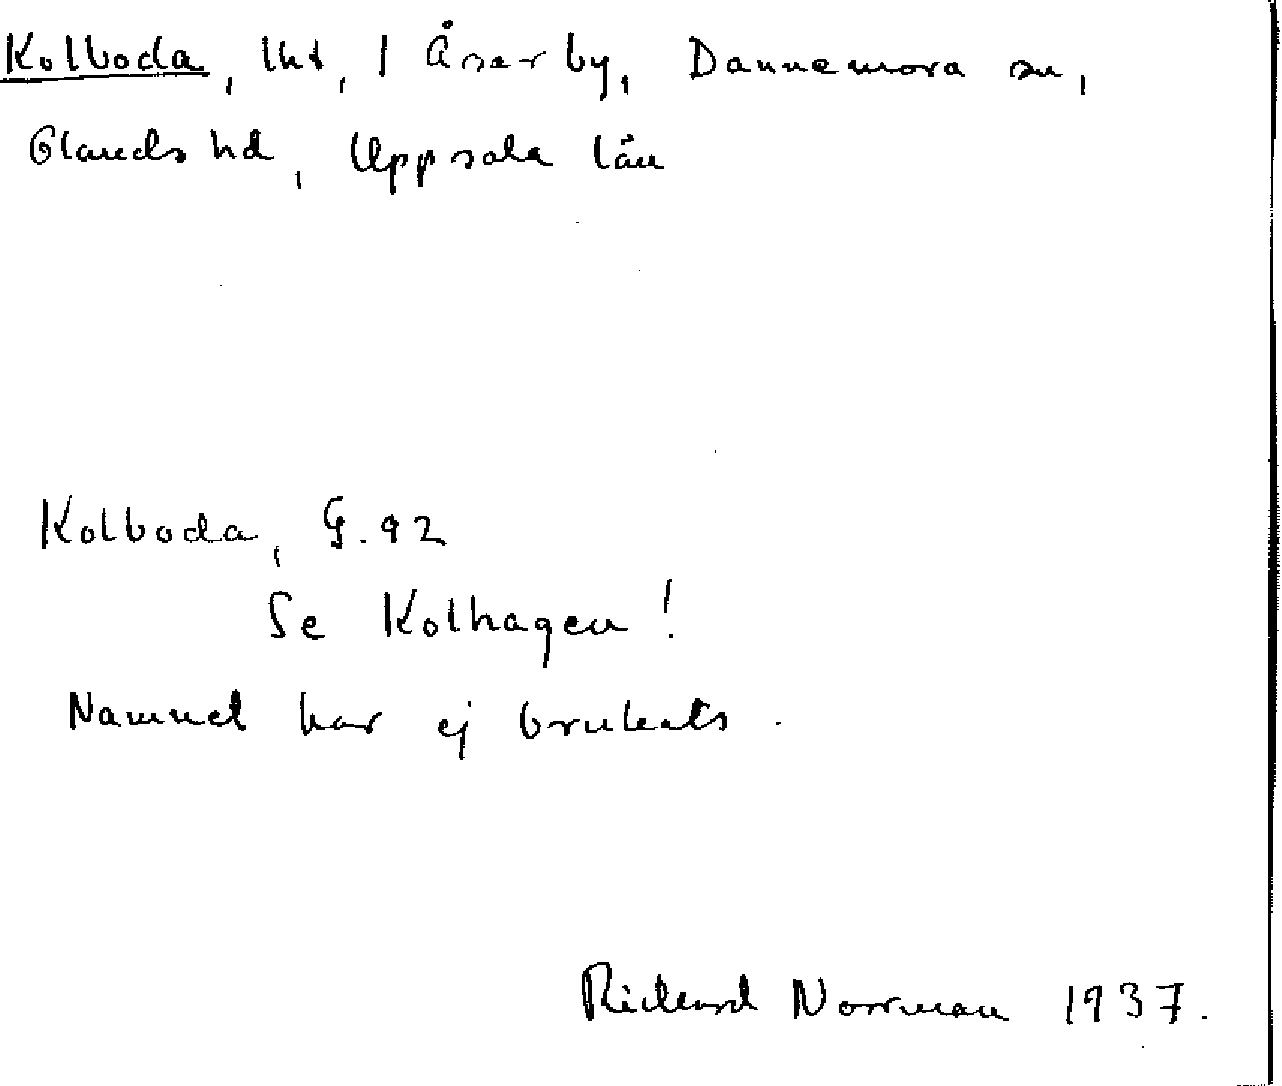 Kolboda, lht, I Åsarby, Dannemora sn,
Olands hd, Uppsala län
Kolboda, G. 92
Se Kolhagen!
Namnet har ej brukats.
Richard Norrman 1937.